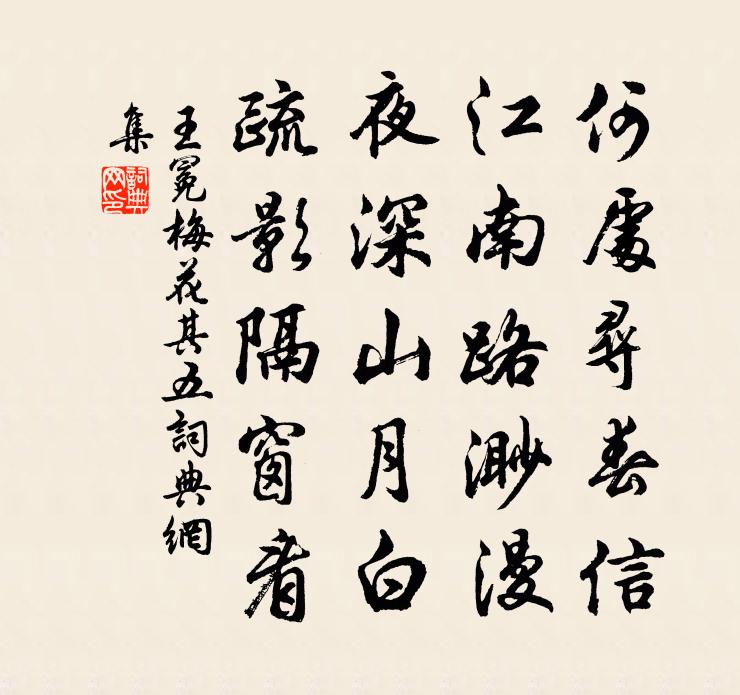 何處尋春信
江南路渺漫
夜深山月白
疏影隔窗看
王冕梅花其五詞典網
集
詞典
网印